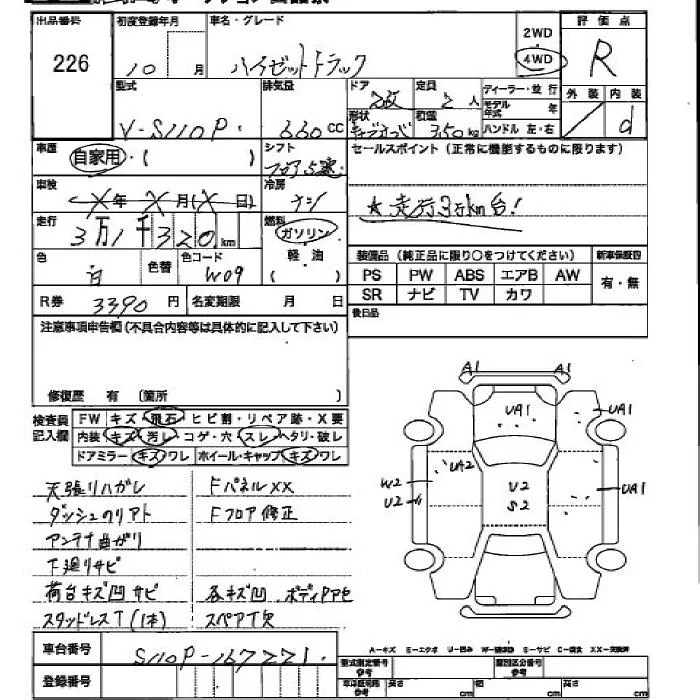 出品番号 初度登録年月 車名・グレード 2WD 評価点
226 10 月 ハイゼットトラック 4WD R
型式 排気量 ドア 定員 ディーラー・並行 外装 内装
V-S110P 660cc 2枚 2人 モデル年式 年 d
形状 積載 キャブオーバ 350kg ハンドル 左・右
車歴 自家用・( ) シフト フロア5速 セールスポイント(正常に機能するものに限ります)
車検 X年X月(X日) 冷房 ナシ
★走行3万km台!
走行 3万1千320km 燃料 ガソリン 軽油 ( )
装備品 (純正品に限り○をつけてください) 新車保証書
色 白 色替 色コード W09
PS PW ABS エアB AW 有・無
SR ナビ TV カワ
R券 3390円 名変期限 月 日
後日品
注意事項申告欄(不具合内容等は具体的に記入して下さい)
修復歴 有 (箇所 )
検査員記入欄 FW キズ・飛石・ヒビ割・リペア跡・X要
内装・キズ・汚レ・コゲ・穴・スレ・ヘタリ・破レ
ドアミラー・キズ・ワレ ホイール・キャップ・キズ・ワレ
A1 A1
UA1 UA1
W2 UA2
U2 U2 UA1
S2
天張リハガレ FパネルXX
ダッシュのリアト Fフロア修正
アンテナ曲ガリ
下廻リサビ
荷台キズ凹サビ 各キズ凹 ボディPアセ
スタッドレスT(1本) スペアT欠
車台番号 S110P-167221
A-キズ E-エクボ U-凹み W-補修跡 S-サビ C-腐食 XX-交換済
登録番号
型式指定番号 参考 類別区分番号 参考
車体実寸 参考 長さ cm 幅 cm 高さ cm